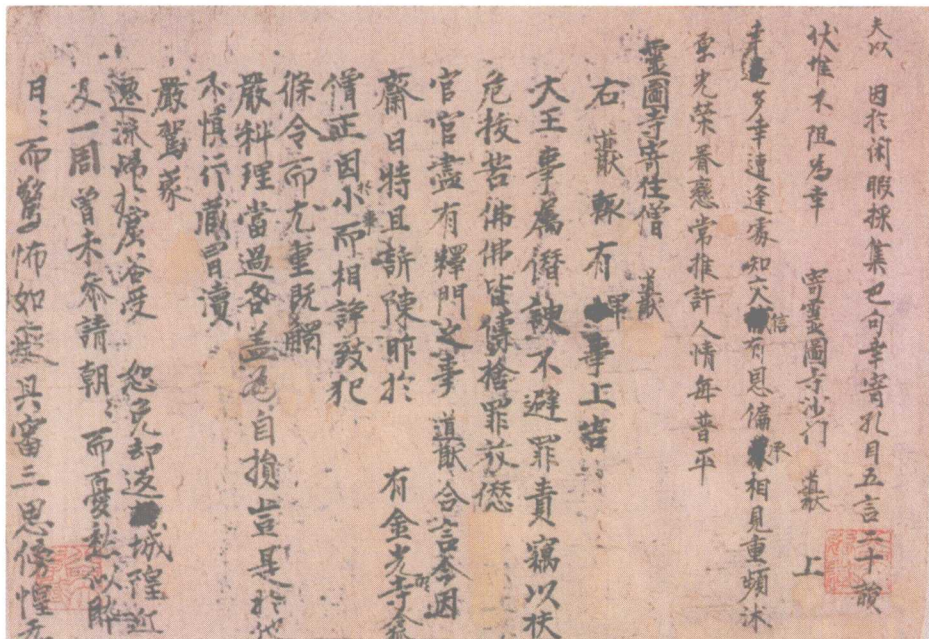 夫以 因於閑暇採集巴句幸寄孔目五言二十韻
伏惟不阻為幸 寄靈圖寺沙門 道猷 上
多幸遭逢處知交信有恩偏承相見重頻沐
光榮眷戀常推許人情每普平
靈圖寺寄住僧 道猷
右 道猷輒有事上告
大王事屬僭諫不避罪責竊以扶
危拔苦佛佛皆傳捨罪放愆
官官盡有釋門之事 道猷合言今因
齋日特且訴陳昨於 有金光寺
僧正因小事而相諍致犯
條令而尤重既觸
嚴科理當過各盖是自損豈是於他
不慎行藏冒瀆
嚴駕蒙
流歸於窟谷受 恕免却返城隍近
及一周曾未參請朝〻而憂愁以
日〻而驚怖如癡具富三思傍惶